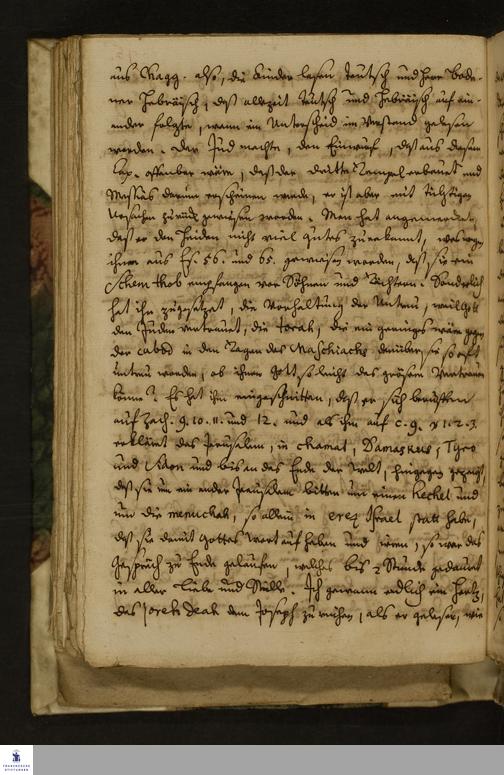 aus Chagg. also, die Kinder lasen teutsch und Herr Bode-
ner Hebräisch, daß allezeit teutsch und Hebräisch auf ein-
ander folgte, wann ein Unterscheid im Verstand gelesen
worden. Der Jud machte, den Einwurf, daß aus diesem
Cap. offenbar wäre, daß der dritte Tempel erbauet und
Messias darinn erscheinen werde, er ist aber mit tüchtigen
Ursachen zurück gewiesen worden. Man hat angemercket,
daß er den Heiden nicht viel gutes zuerkennt, weswegen
ihnen aus Es. 56. und 65. gewiesen worden, daß sie ein
Schem thob empfangen vor Söhnen und Töchtern. Sonderlich
hat ihn zugesetzet, die Vorhaltung der Untreu, weil Gott
den Juden vertrauet, die Torah, die ein geringes wäre gegen
der cabod in den Tagen des Maschiachs darüber sie so oft
untreu worden, ob ihnen Gott so leicht das grösere Vertrauen
könne? Es hat ihn eingeschnitten, daß er sich beruffen
auf Zach. 9. 10. 11. und 12. und als ihm auf c. 9. v 1. 2. 3.
erkläret das Jerusalem, in chamat, Damaskus, Tyro
und Sidon und bis an das Ende der Welt, hingegen gezeigt
daß sie um ein ander Jerusalem bitten um einen Hechel und
um die menuchah, so allein in erez Israel statt habe,
daß sie damit Gottes Wort aufheben und irren, so war das
Gespräch zu Ende gelaufen, welches bis 2 Stunde gedauret
in aller Liebe und Stille. Ich gewann endlich ein Hertz,
das Joreh Deah dem Joseph zu reichen, als er gelesen, wie
FRANCKESCHE
STIFTUNGEN